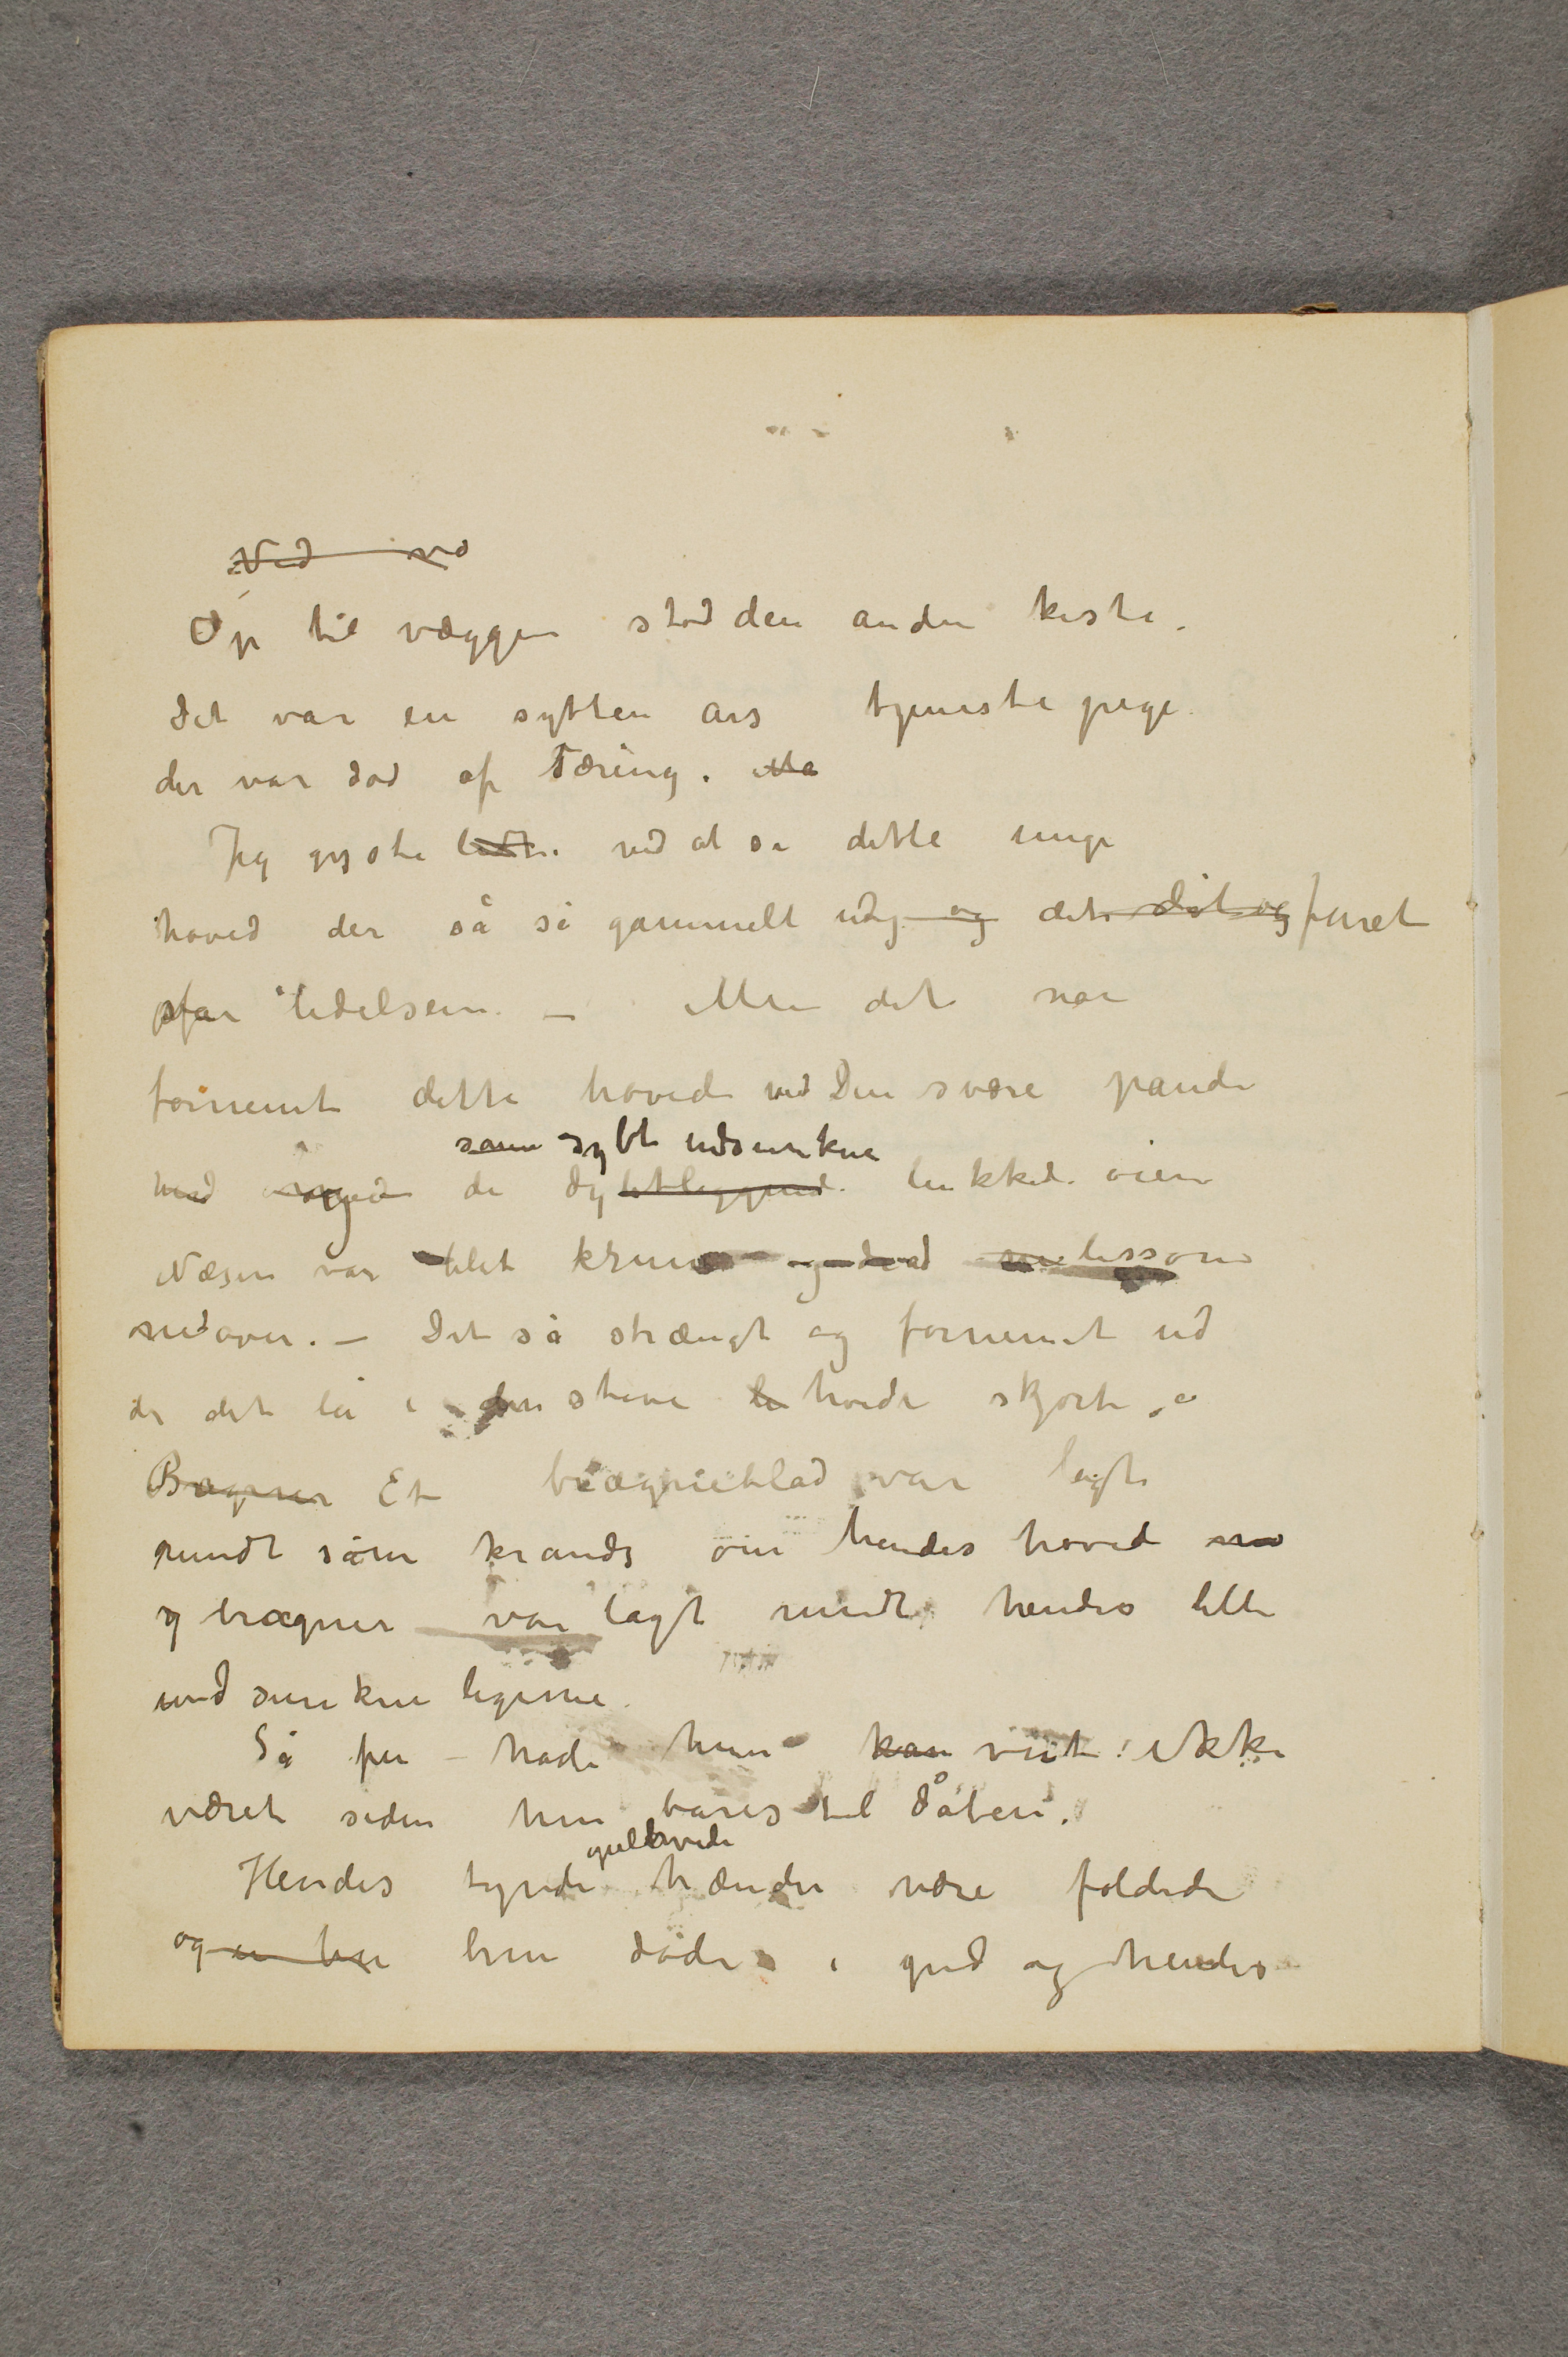 Ved ve
Op til væggen stod den anden kiste.
Det var en sytten års tjenestepige
der var død af Tæring. Ma
Jeg gyste lidt ved at se dette unge
hoved der så så gammelt ud og det furet
af lidelsen – Men det var
fornemt dette hoved med Den svære pande
som sybt indsunkne
med de dybtliggende lukkede øiene
Næsen var blet krum ligesom
nedover. – Det så strængt og fornemt ud
der det lå i den stive hvide skjorte.
Bregner Et bregneblad var lagt
rundt som krands om hendes hoved
og bregner var lagt rundt hendes lille
indsunkne legeme.
Så fin hade hun kan vist ikke
været siden hun bares til dåben.
gulhvide
Hendes tynde hænder være foldede
og hun døde i gud og hendes